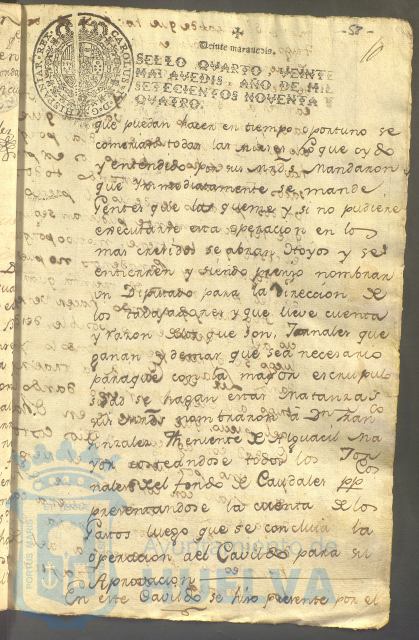 - 58 -
10
Veinte maravedis.
SELLO QUARTO, VEINTE
MARAVEDIS, AÑO DE MIL
SETECIENTOS NOVENTA Y
QUATRO.
que puedan hacer en tiempo oportuno se
todas las que oydo
y entendido por sus mrds. Mandaron
que inmediatamente se mande
Gente que las queme y si no pudiere
executarse esta operacion en los
mas crecidos se abran Hoyos y se
entierren y siendo preciso nombrar
un Diputado para la Direccion de
los trabajadores y que lleve cuenta
y razon de los que son, Jornales que
ganan y demas que sea necesario
para que con la mayor escrupulo
sidad se hagan estas Matanzas
sus mrds nombraron a Dn. Fran.co
Gonzalez Theniente de Alguacil Ma
yor costeandose todos los Jor
nales del fondo de Caudales pp.cos
presentandose la cuenta de los
Gastos luego que se concluia la
operacion del Cavildo para su
Aprovacion
En este Cavildo se hizo presente por el
Ayuntamiento de
HUELVA
PORTUS MARIS